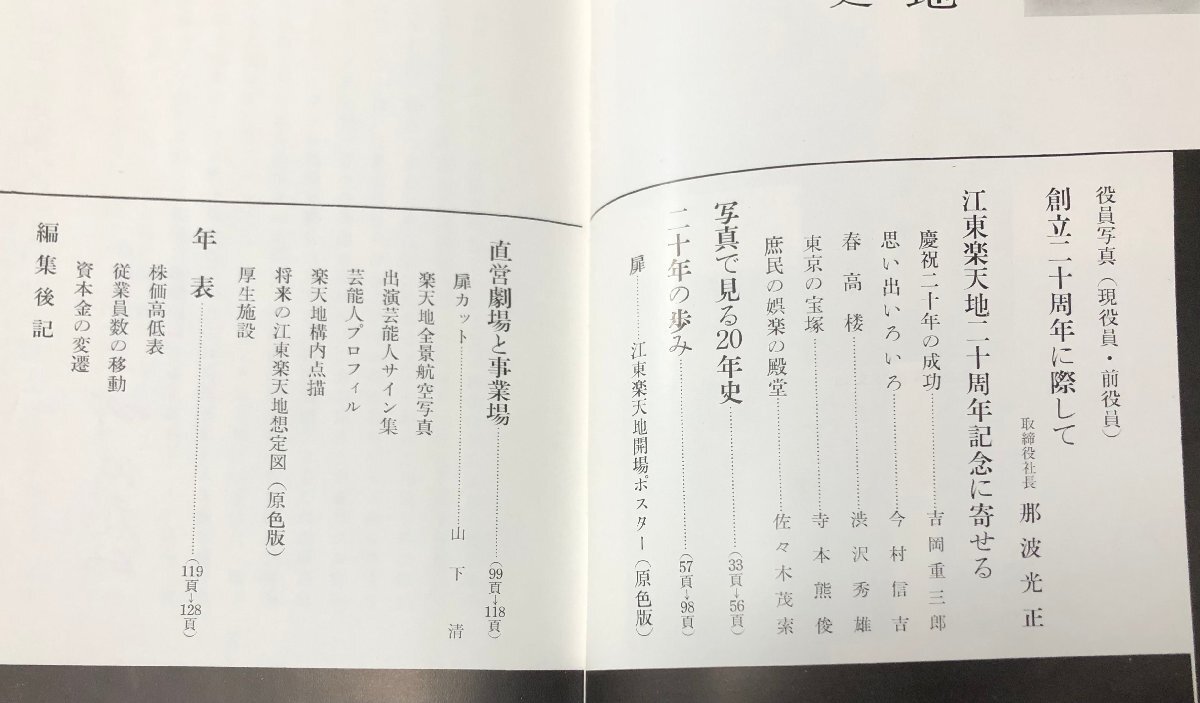 地
役員写真(現役員・前役員)
創立二十周年に際して
取締役社長 那波光正
江東楽天地二十周年記念に寄せる
慶祝二十年の成功…………吉岡重三郎
思い出いろいろ…………今村信吉
春高楼…………渋沢秀雄
東京の宝塚…………寺本熊俊
庶民の娯楽の殿堂…………佐々木茂索
写真で見る20年史…………(33頁→56頁)
二十年の歩み…………(57頁→98頁)
扉…………江東楽天地開場ポスター(原色版)
直営劇場と事業場…………(99頁→118頁)
扉カット…………山下清
楽天地全景航空写真
出演芸能人サイン集
芸能人プロフィル
楽天地構内点描
将来の江東楽天地想定図(原色版)
厚生施設
年表…………(119頁→128頁)
株価高低表
従業員数の移動
資本金の変遷
編集後記